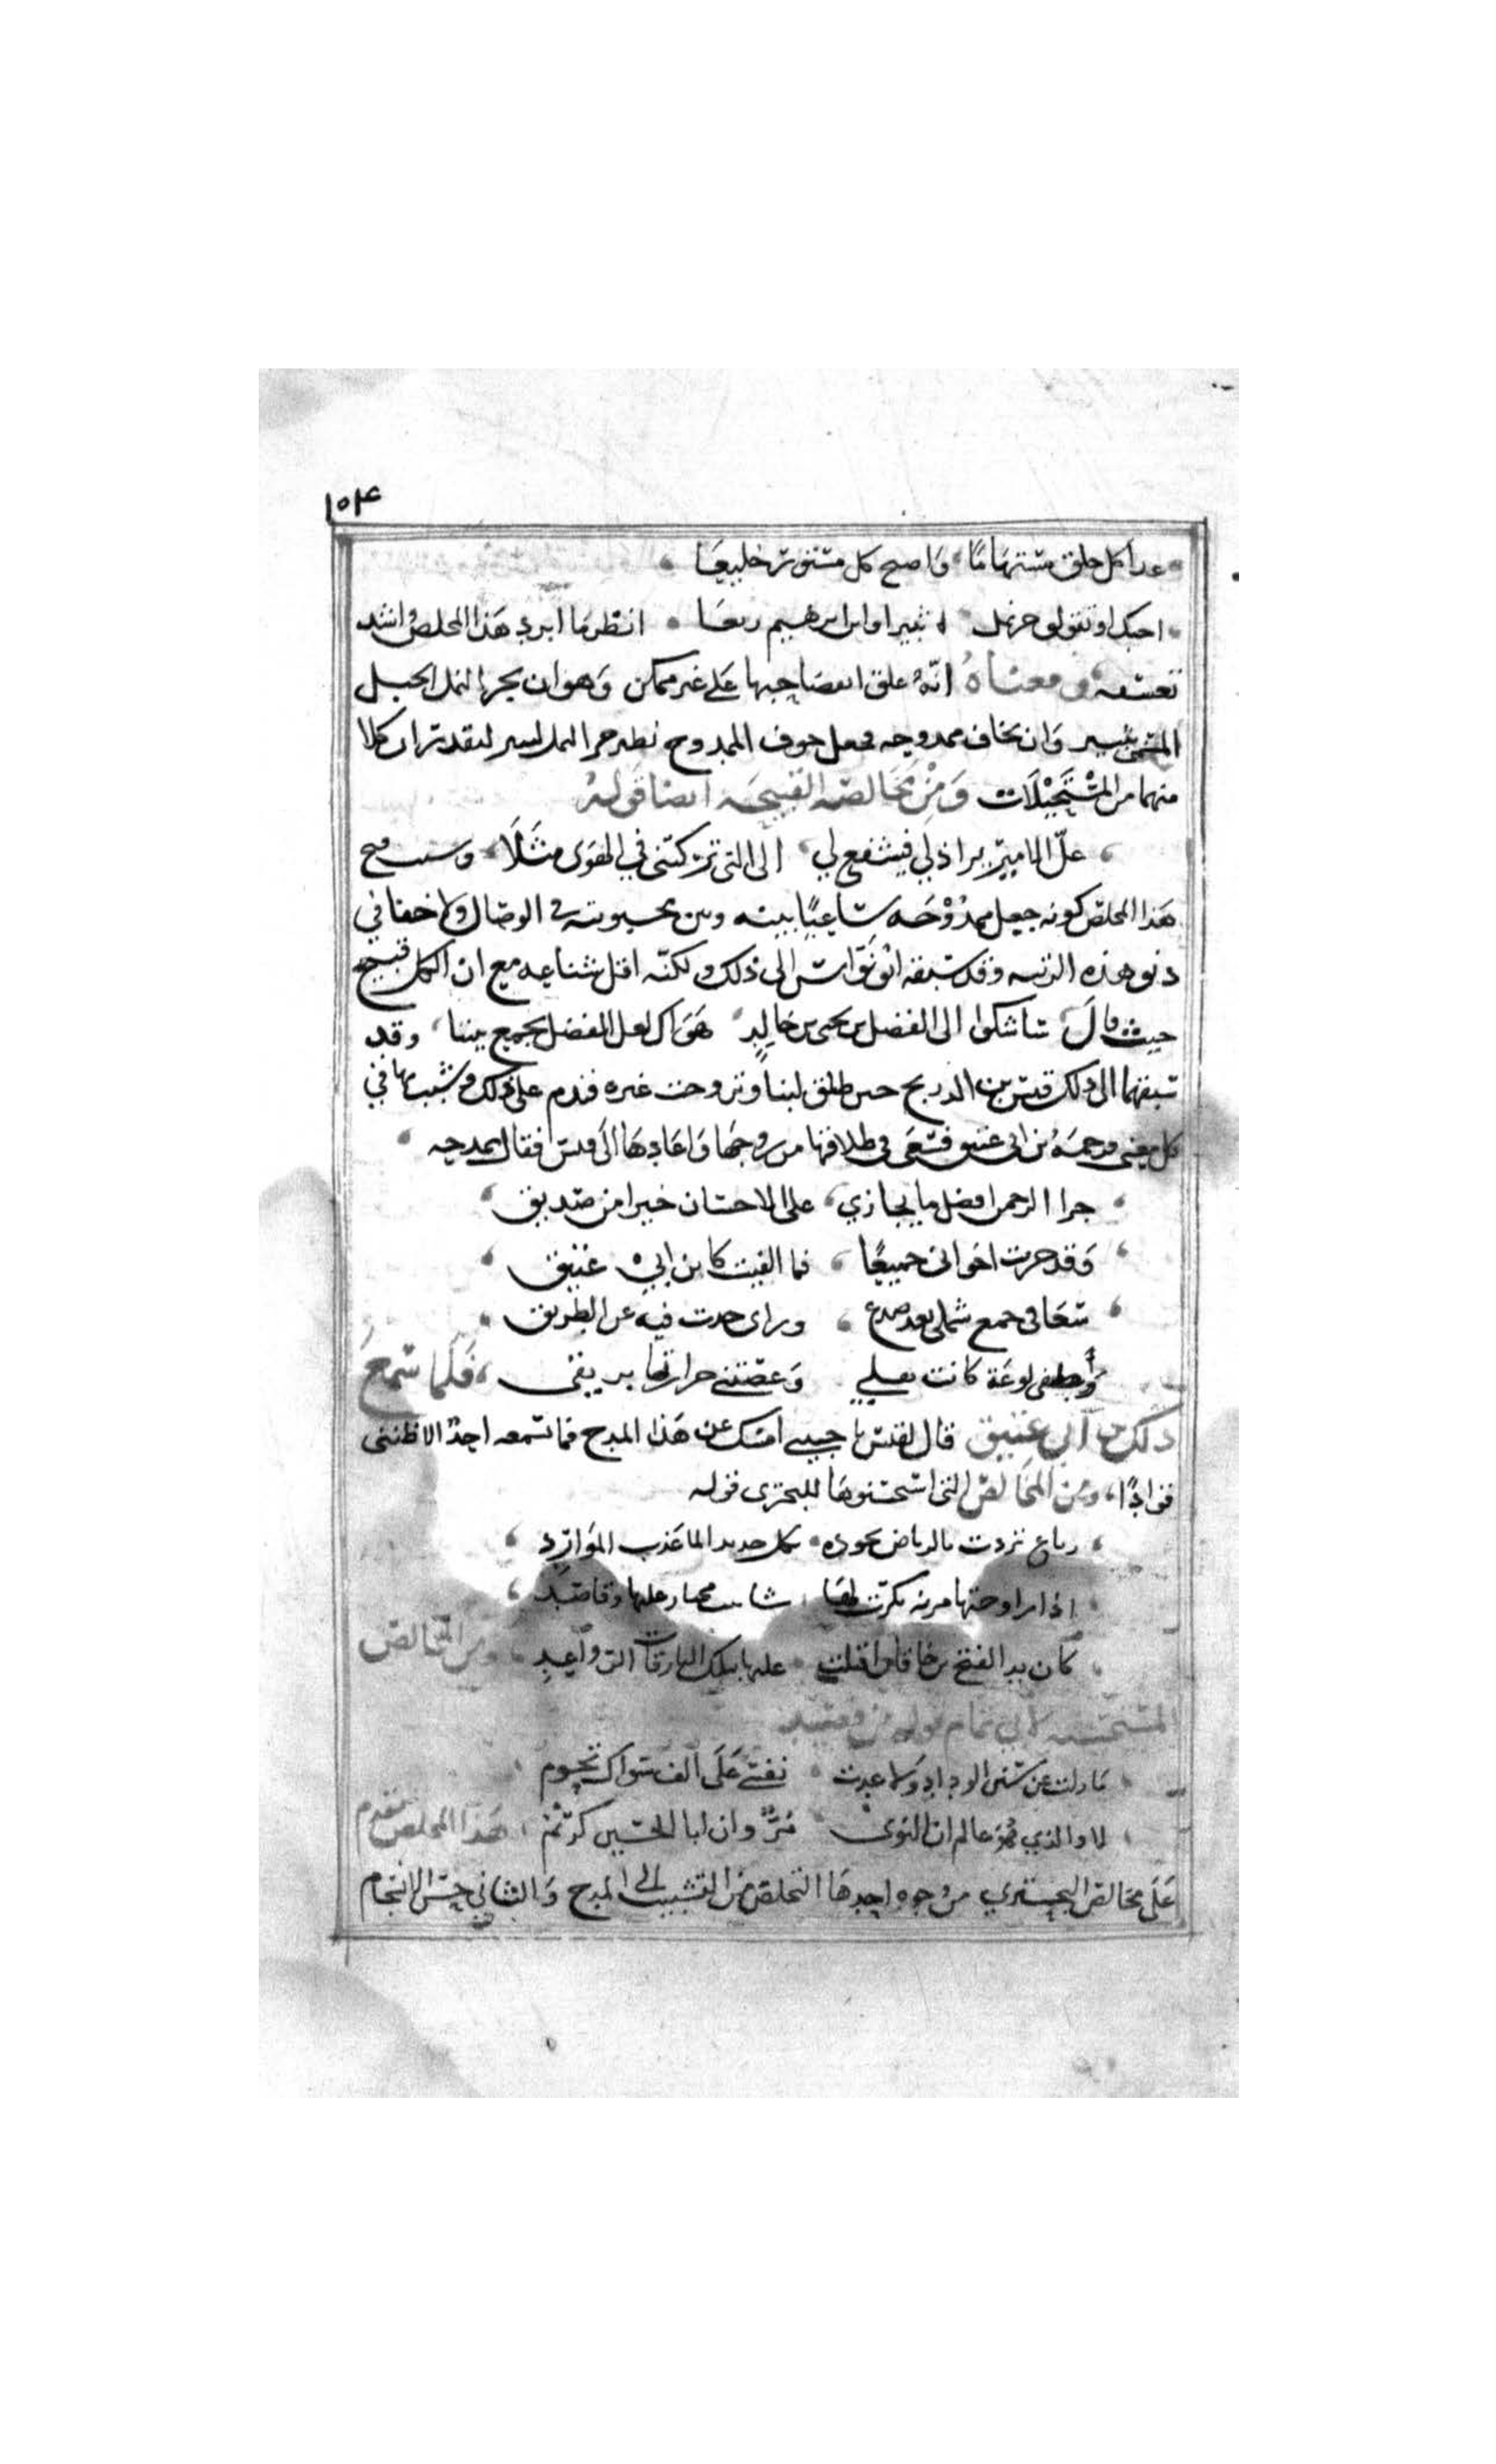 ١٥٤
غدا كل خلق مستهاما واصبح كل مستور خليعا
احبك او تقولوا جر نمل ثبيرا وابن ابرهيم ريعا انظر ما ابرد هذا المخلص واشد
تعسفه ومعناه انه علق انفصا حبها على غير ممكن وهو ان يجر النمل الجبل
المسمى بثبير وان يخاف ممدوحه فجعل خوف الممدوح نظير جر النمل لثبير لتقدير ان كلا
منهما من المستحيلات ومن مخالصه القبيحه ايضا قوله
علّ الامير يرا ذلي فيشفع لي الى التي تركتني في الهوى مثلا وسبب قبح
هذا المخلص كونه جعل ممدوحه ساعيا بينه وبين محبوبته في الوصال ولا خفا في
دنو هذه الرتبه وقد سبقه ابو نواس الى ذلك ولكنه اقل شناعه مع ان الكل قبيح
حيث قال ساشكوا الى الفضل بن يحيى بن خالد هواك لعل الفضل يجمع بيننا وقد
سبقهما الى ذلك قيس بن الذريح حين طلق لبنا وتزوجت غيره فندم على ذلك وشبب بها في
كل معنى فرحمه بن ابي عتيق فسعى في طلاقها من زوجها واعادها الى قيس فقال يمدحه
جزا الرحمن افضل ما يجازي على الاحسان خيرا من صديق
وقد جربت اخواني جميعا فما الفيت كابن ابي عتيق
سعا في جمع شملي بعد صدع وراى حدت فيه عن الطريق
وأطفى لوعة كانت بقلبي وغصتني حرارتها بريقي فلما سمع
ذلك بن ابي عتيق قال لقيس يا حبيبي امسك عن هذا المدح فما سمعه احد الا ظنني
قوادا ومن المخالص التي استحسنوها للبحتري قوله
رباع تردت بالرياض مجوده بكل جديد الما عذب الموارد
اذا راوحتها مزنه بكرت لها شابيب مجتاز عليها وقاصد
كان يد الفتح بن خاقان اقبلت عليها بتلك البارقات الرواعد ومن المخالص
المستحسنه لابي تمام قوله من قصيد
ما زلت عن سنن الوداد ولا غدت نفسي على الف سواك تحوم
لا والذي هو عالم ان النوى مرّ وان ابا الحسين كريم هذا المخلص مقدم
على مخالص البحتري من وجوه احدها التخلص من التشبيب الى المدح والثاني حسن الانسجام